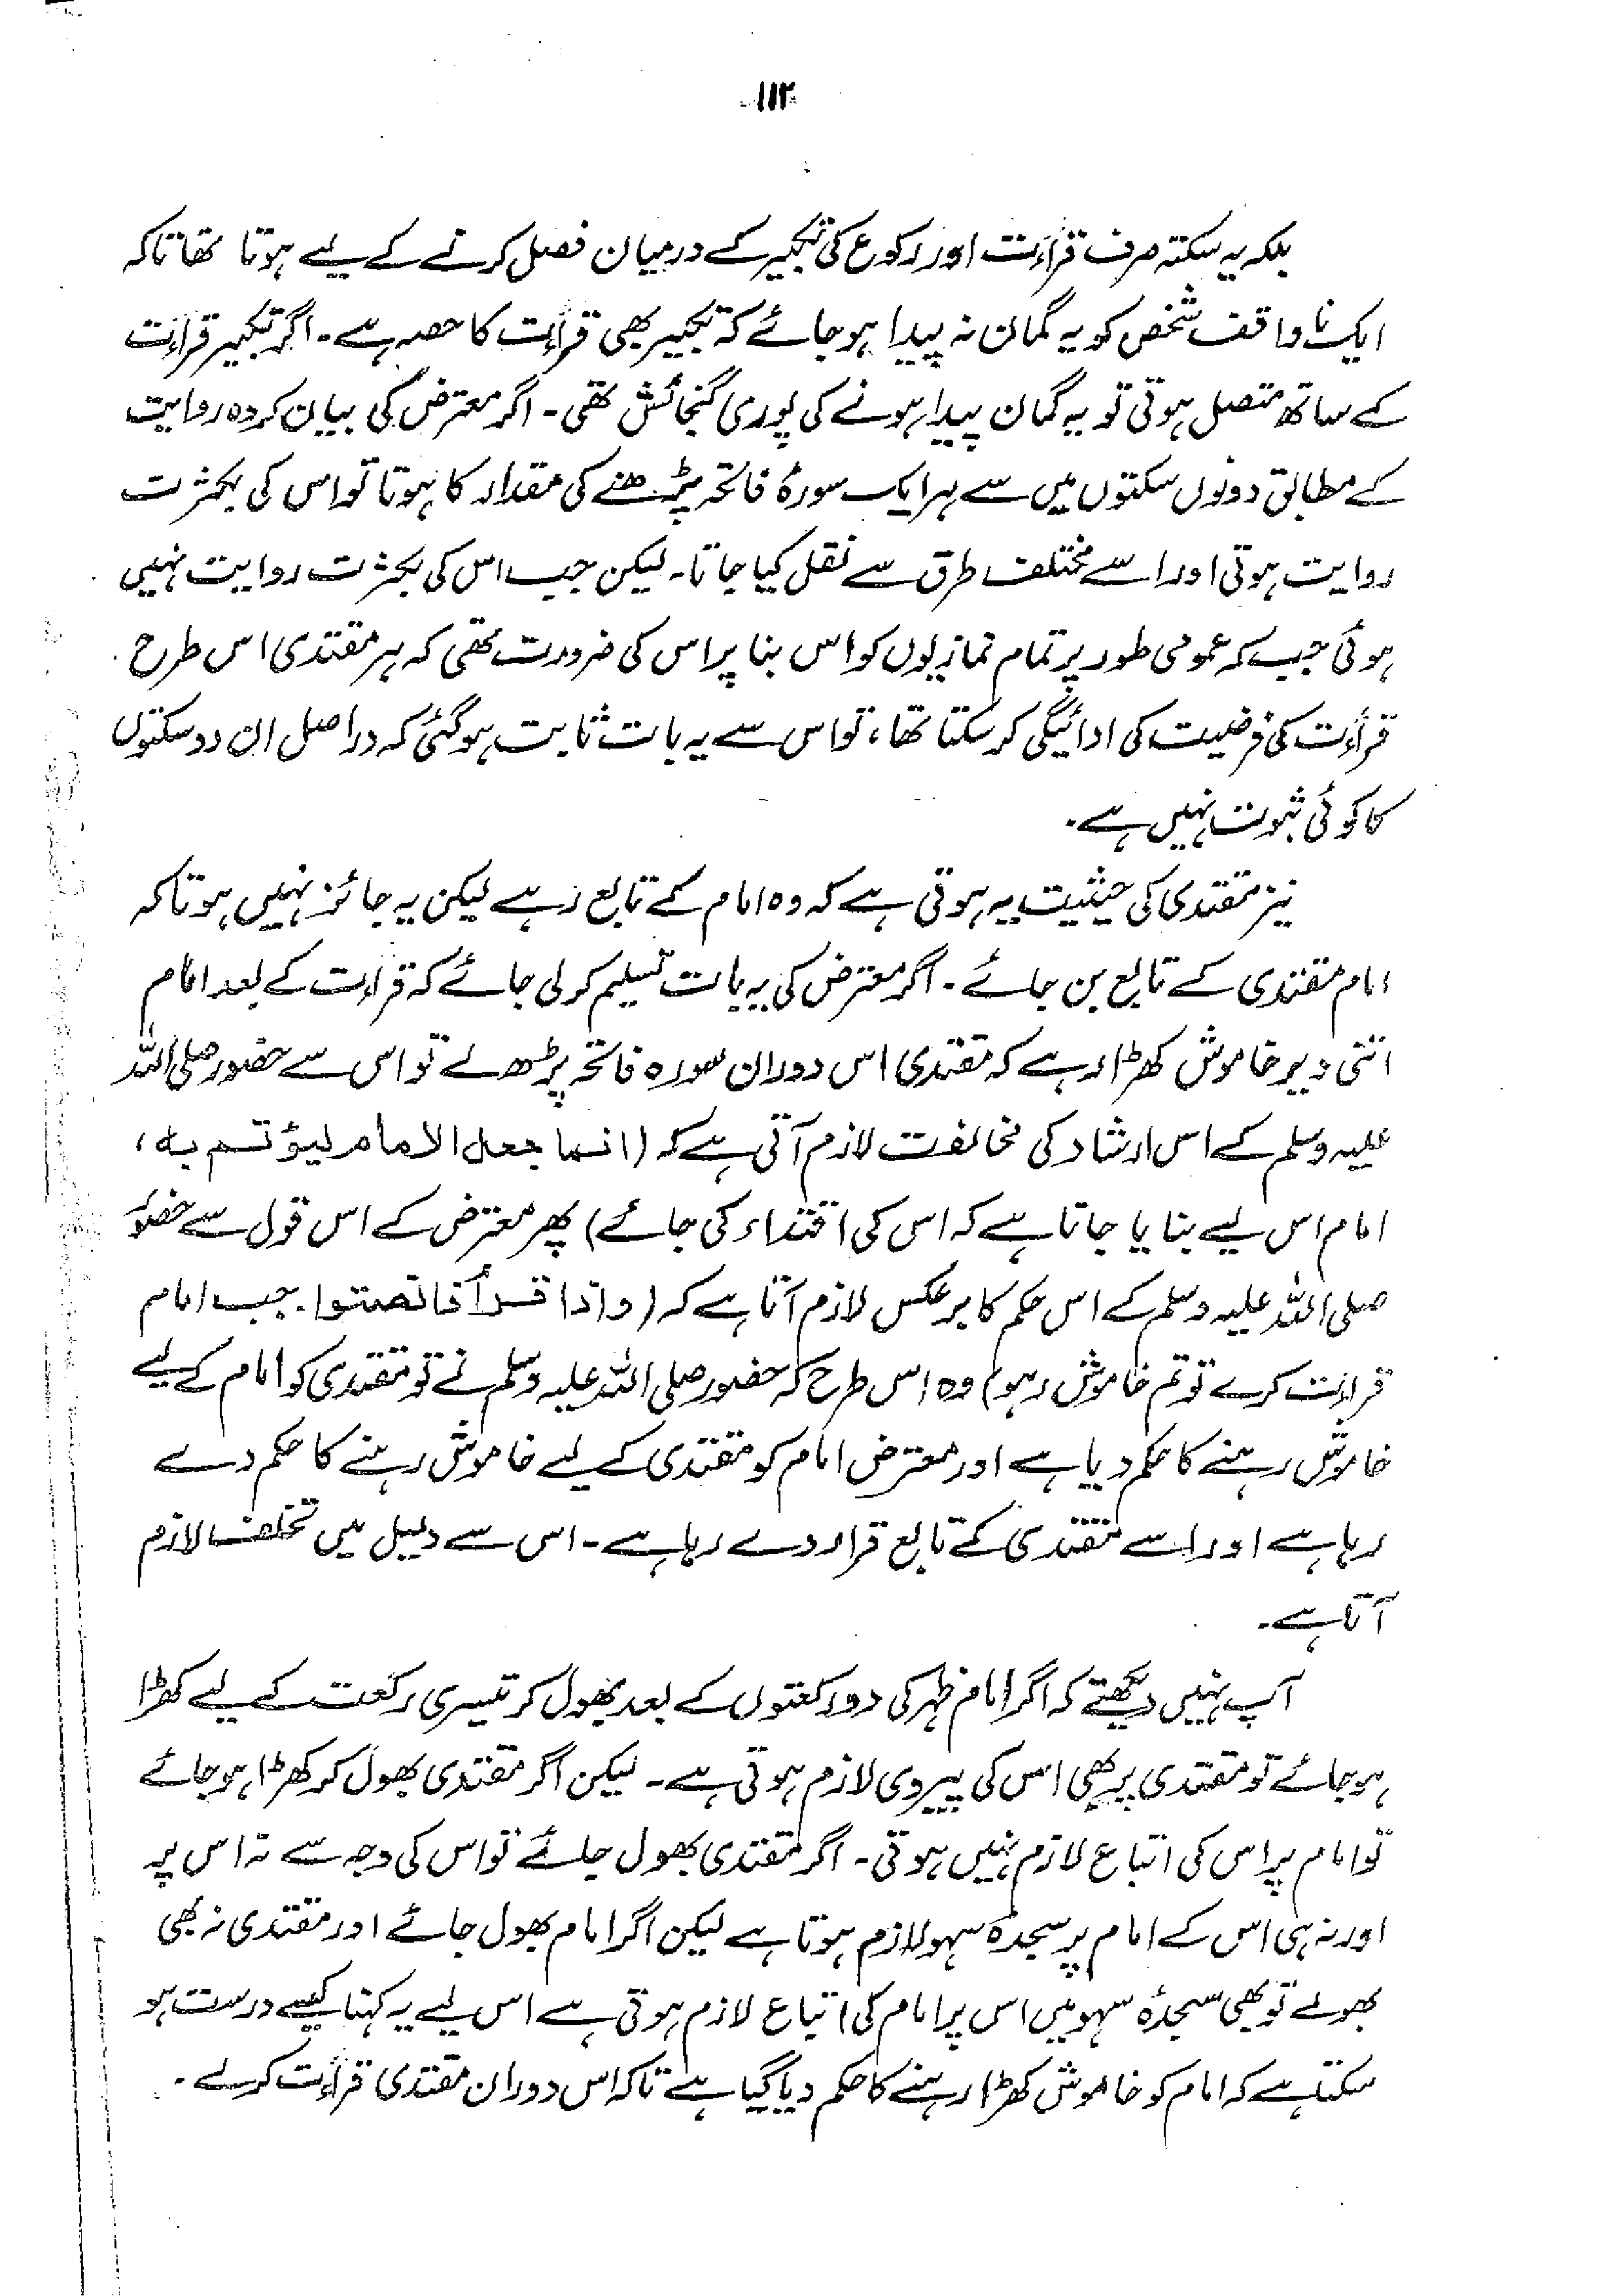 ۱۱۲
بلکہ یہ سکتہ صرف قرأت اور رکوع کی تکبیر کے درمیان فصل کرنے کے لیے ہوتا تھا تاکہ
ایک نا واقف شخص کو یہ گمان نہ پیدا ہو جائے کہ تکبیر بھی قرأت کا حصہ ہے۔ اگر تکبیر قرأت
کے ساتھ متصل ہوتی تو یہ گمان پیدا ہونے کی پوری گنجائش تھی۔ اگر معترض کی بیان کردہ روایت
کے مطابق دونوں سکتوں میں سے ہر ایک سورۂ فاتحہ پڑھنے کی مقدار کا ہوتا تو اس کی بکثرت
روایت ہوتی اور اسے مختلف طرق سے نقل کیا جاتا۔ لیکن جب اس کی بکثرت روایت نہیں
ہوئی جب کہ عمومی طور پر تمام نمازیوں کو اس بنا پر اس کی ضرورت تھی کہ ہر مقتدی اس طرح
قرأت کی فرضیت کی ادائیگی کر سکتا تھا، تو اس سے یہ بات ثابت ہو گئی کہ دراصل ان دو سکتوں
کا کوئی ثبوت نہیں ہے۔
نیز مقتدی کی حیثیت یہ ہوتی ہے کہ وہ امام کے تابع رہے لیکن یہ جائز نہیں ہوتا کہ
امام مقتدی کے تابع بن جائے۔ اگر معترض کی یہ بات تسلیم کر لی جائے کہ قرأت کے بعد امام
اتنی دیر خاموش کھڑا رہے کہ مقتدی اس دوران سورہ فاتحہ پڑھ لے تو اس سے حضور صلی اللہ
علیہ وسلم کے اس ارشاد کی مخالفت لازم آتی ہے کہ (انما جعل الامام لیؤتم به،
امام اس لیے بنایا جاتا ہے کہ اس کی اقتداء کی جائے) پھر معترض کے اس قول سے حضور
صلی اللہ علیہ وسلم کے اس حکم کا برعکس لازم آتا ہے کہ (واذا قرأ فانصتوا۔ جب امام
قرأت کرے تو تم خاموش رہو) وہ اس طرح کہ حضور صلی اللہ علیہ وسلم نے تو مقتدی کو امام کے لیے
خاموش رہنے کا حکم دیا ہے اور معترض امام کو مقتدی کے لیے خاموش رہنے کا حکم دے
رہا ہے اور اسے مقتدی کے تابع قرار دے رہا ہے۔ اس سے دلیل میں تخلف لازم
آتا ہے۔
آپ نہیں دیکھتے کہ اگر امام ظہر کی دو رکعتوں کے بعد بھول کر تیسری رکعت کے لیے کھڑا
ہو جائے تو مقتدی پر بھی اس کی پیروی لازم ہوتی ہے۔ لیکن اگر مقتدی بھول کر کھڑا ہو جائے
تو امام پر اس کی اتباع لازم نہیں ہوتی۔ اگر مقتدی بھول جائے تو اس کی وجہ سے نہ اس پر
اور نہ ہی اس کے امام پر سجدۂ سہو لازم ہوتا ہے لیکن اگر امام بھول جائے اور مقتدی نہ بھی
بھولے تو بھی سجدۂ سہو میں اس پر امام کی اتباع لازم ہوتی ہے اس لیے یہ کہنا کیسے درست ہو
سکتا ہے کہ امام کو خاموش کھڑا رہنے کا حکم دیا گیا ہے تاکہ اس دوران مقتدی قرأت کرلے۔